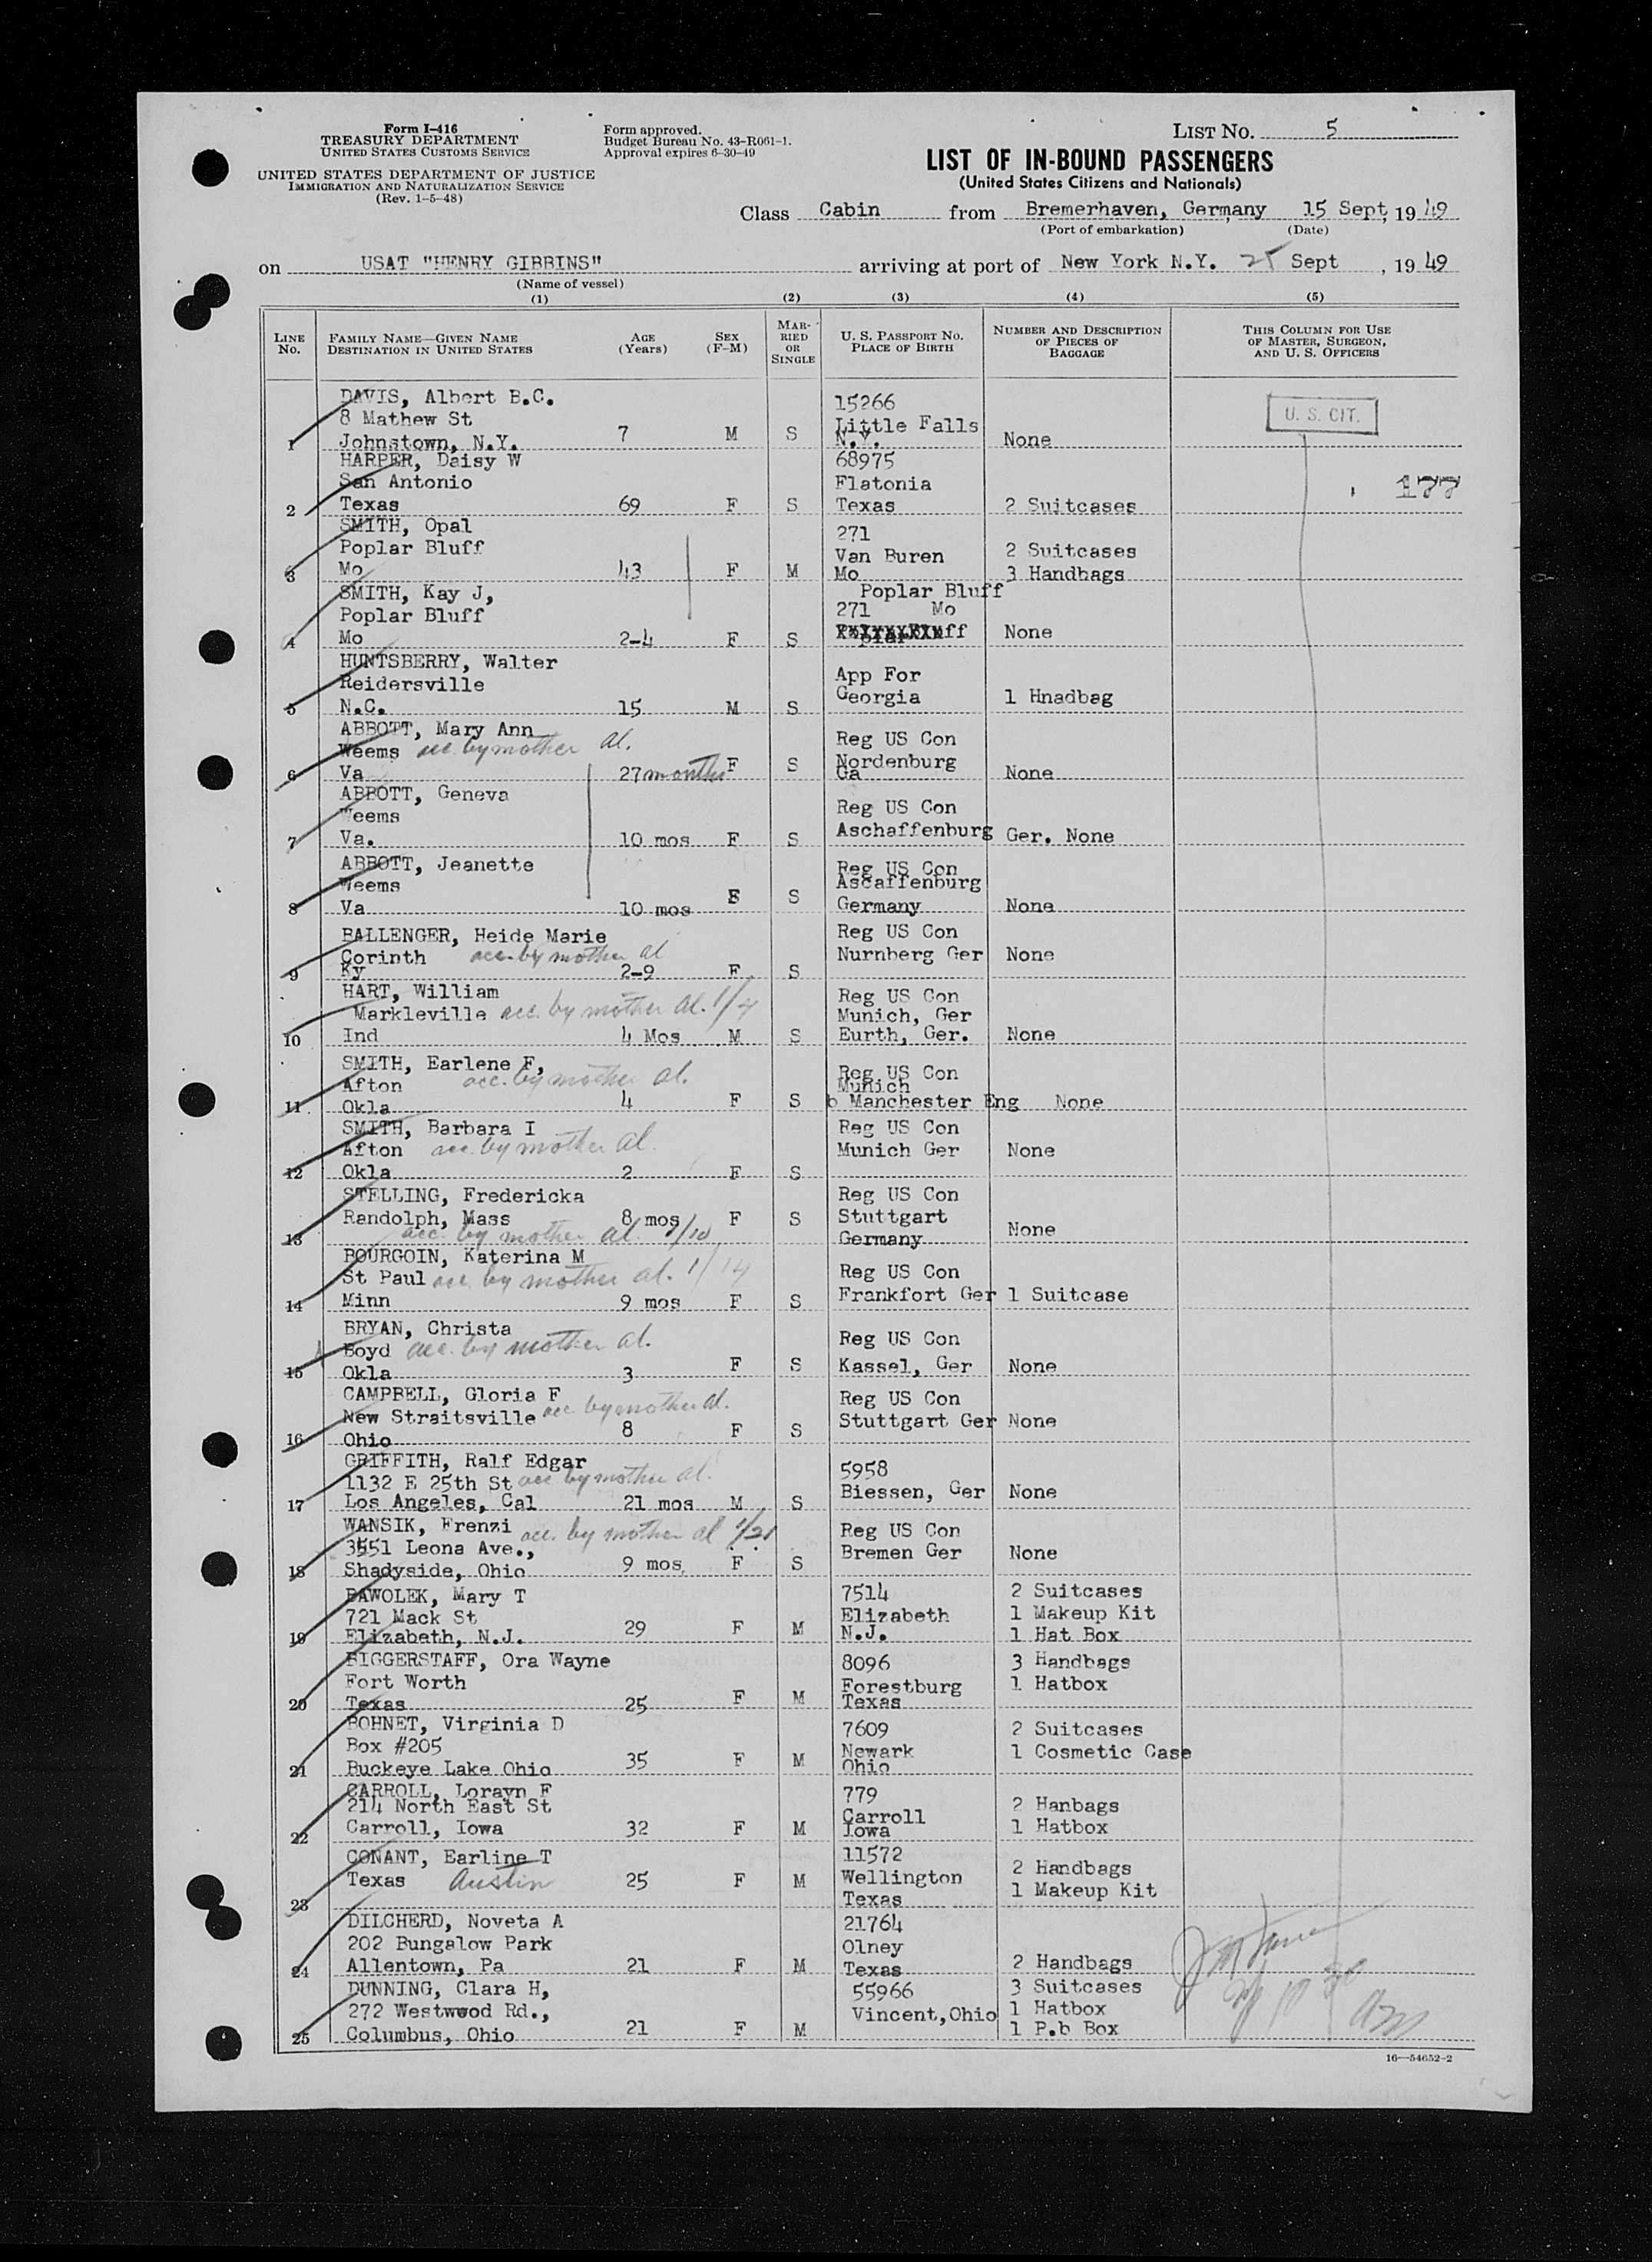 Form I-416
TREASURY DEPARTMENT
UNITED STATES CUSTOMS SERVICE
UNITED STATES DEPARTMENT OF JUSTICE
IMMIGRATION AND NATURALIZATION SERVICE
(Rev. 1-5-48)
Form approved.
Budget Bureau No. 43-R061-1.
Approval expires 6-30-49
LIST NO. 5
LIST OF IN-BOUND PASSENGERS
(United States Citizens and Nationals)
Class Cabin from Bremerhaven, Germany 15 Sept, 19 49
(Port of embarkation) (Date)
on USAT "HENRY GIBBINS" arriving at port of New York N.Y. 25 Sept , 19 49
(Name of vessel)
(1) (2) (3) (4) (5)
LINE No.
FAMILY NAME—GIVEN NAME
DESTINATION IN UNITED STATES
AGE (Years)
SEX (F-M)
MARRIED OR SINGLE
U. S. PASSPORT NO.
PLACE OF BIRTH
NUMBER AND DESCRIPTION OF PIECES OF BAGGAGE
THIS COLUMN FOR USE OF MASTER, SURGEON, AND U. S. OFFICERS
DAVIS, Albert B.C. 15266
8 Mathew St Little Falls U. S. CIT.
1 Johnstown, N.Y. 7 M S N.Y. None
HARPER, Daisy W 68975
San Antonio Flatonia 177
2 Texas 69 F S Texas 2 Suitcases
SMITH, Opal 271
Poplar Bluff Van Buren 2 Suitcases
3 Mo 43 F M Mo 3 Handbags
SMITH, Kay J, Poplar Bluff
Poplar Bluff 271 Mo
4 Mo 2-4 F S None
HUNTSBERRY, Walter
Reidersville App For
5 N.C. 15 M S Georgia 1 Hnadbag
ABBOTT, Mary Ann Reg US Con
Weems acc. by mother al. Nordenburg
6 Va 27 months F S Ga None
ABBOTT, Geneva Reg US Con
Weems Aschaffenburg Ger. None
7 Va. 10 mos F S
ABBOTT, Jeanette Reg US Con
Weems Ascaffenburg
8 Va 10 mos F S Germany None
BALLENGER, Heide Marie Reg US Con
Corinth acc. by mother al Nurnberg Ger None
9 Ky 2-9 F S
HART, William Reg US Con
Markleville acc. by mother al. 1/4 Munich, Ger
10 Ind 4 Mos M S Eurth, Ger. None
SMITH, Earlene F, Reg US Con
Afton acc. by mother al. Munich
11 Okla 4 F S b Manchester Eng None
SMITH, Barbara I Reg US Con
Afton acc. by mother al Munich Ger None
12 Okla 2 F S
STELLING, Fredericka Reg US Con
Randolph, Mass 8 mos F S Stuttgart None
13 acc. by mother al 1/10 Germany
BOURGOIN, Katerina M Reg US Con
St Paul acc by mother al. 1/14 Frankfort Ger 1 Suitcase
14 Minn 9 mos F S
BRYAN, Christa Reg US Con
Boyd acc. by mother al. Kassel, Ger None
15 Okla 3 F S
CAMPBELL, Gloria F Reg US Con
New Straitsville acc by mother al. Stuttgart Ger None
16 Ohio 8 F S
GRIFFITH, Ralf Edgar 5958
1132 E 25th St acc by mother al. Biessen, Ger None
17 Los Angeles, Cal 21 mos M S
WANSIK, Frenzi acc. by mother al 1/21 Reg US Con
3551 Leona Ave., Bremen Ger None
18 Shadyside, Ohio 9 mos F S
BAWOLEK, Mary T 7514 2 Suitcases
721 Mack St Elizabeth 1 Makeup Kit
19 Elizabeth, N.J. 29 F M N.J. 1 Hat Box
BIGGERSTAFF, Ora Wayne 8096 3 Handbags
Fort Worth Forestburg 1 Hatbox
20 Texas 25 F M Texas
BOHNET, Virginia D 7609 2 Suitcases
Box #205 Newark 1 Cosmetic Case
21 Buckeye Lake Ohio 35 F M Ohio
CARROLL, Lorayn F 779
214 North East St Carroll 2 Hanbags
22 Carroll, Iowa 32 F M Iowa 1 Hatbox
CONANT, Earline T 11572 2 Handbags
Texas Austin 25 F M Wellington 1 Makeup Kit
23 Texas
DILCHERD, Noveta A 21764
202 Bungalow Park Olney
24 Allentown, Pa 21 F M Texas 2 Handbags
DUNNING, Clara H, 55966 3 Suitcases
272 Westwood Rd., Vincent, Ohio 1 Hatbox
25 Columbus, Ohio 21 F M 1 P.b Box
16—54652-2